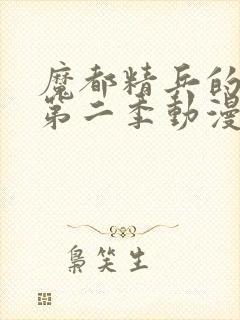 魔都精兵的
第二季動漫
梟笑生